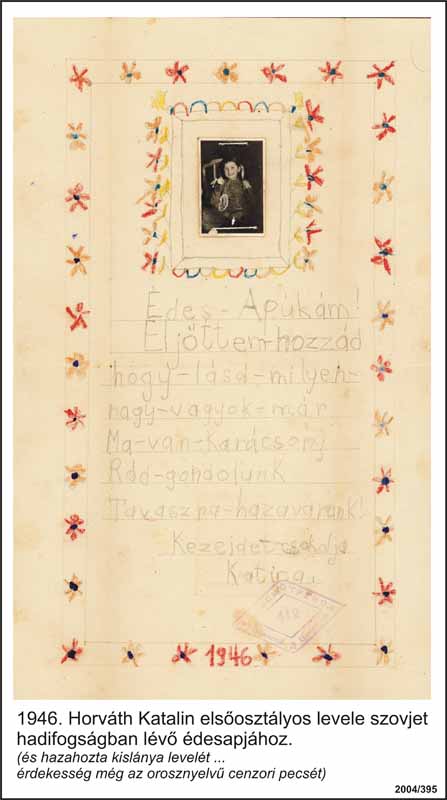 Édes-Apukám!
Eljöttem-hozzád
hogy-lásd-milyen-
nagy-vagyok-már
Ma-van-Karácsony
Rád-gondolunk
Tavaszra-hazavárunk!
Kezeidet csókolja
Katica
112
1946
1946. Horváth Katalin elsőosztályos levele szovjet
hadifogságban lévő édesapjához.
(és hazahozta kislánya levelét ...
érdekesség még az orosznyelvű cenzori pecsét)
2004/395